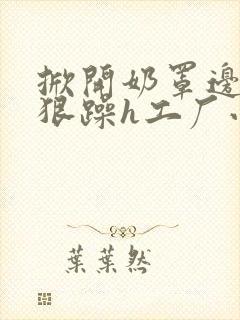 掀開奶罩邊
狠躁h工厂
葉葉然